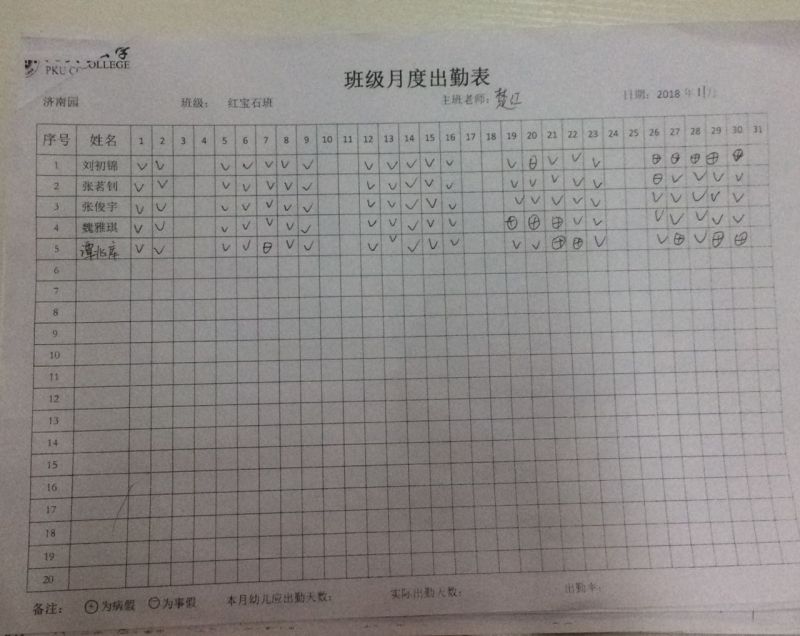 PKU COLLEGE
班级月度出勤表
济南园 班级: 红宝石班 主班老师: 日期: 2018 年 11月
序号 姓名 1 2 3 4 5 6 7 8 9 10 11 12 13 14 15 16 17 18 19 20 21 22 23 24 25 26 27 28 29 30 31
1 刘初锦 √ √ √ √ √ √ √ √ √ √ √ √ √ ⊖ √ √ √ ⊕ ⊕ ⊕ ⊕ ⊕
2 张茗钊 √ √ √ √ √ √ √ √ √ √ √ √ √ √ √ √ √ ⊖ √ √ √ √
3 张俊宇 √ √ √ √ √ √ √ √ √ √ √ √ √ √ √ √ √ √ √ √ √ √
4 魏雅琪 √ √ √ √ √ √ √ √ √ √ √ √ ⊕ ⊕ ⊕ √ √ √ √ √ √ √
5 √ √ √ √ ⊖ √ √ √ √ √ √ √ √ √ ⊕ ⊕ √ √ ⊕ √ ⊕ ⊕
6
7
8
9
10
11
12
13
14
15
16
17
18
19
20
备注: ⊕为病假 ⊖为事假 本月幼儿应出勤天数: 实际出勤天数: 出勤率: